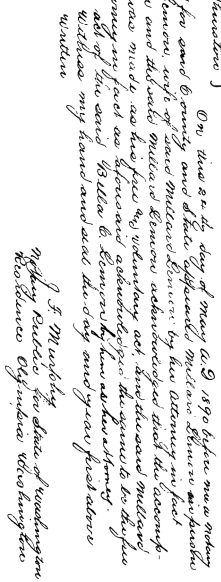 Thurston )
On this 20th day of May A.D 1890 before me a notary
for said County and State appeared Millard Lemon in person
Lemon wife of said Millard Lemon by her attorney in fact
and the said Millard Lemon acknowledged that the accomp-
was made as his free and voluntary act, and the said Millard
in fact as aforesaid acknowledged the same to be the free
act of the said Bella C Lemon by him as her attorney.
Witness my hand and seal the day and year first above
written
J. F. Murphy
Notary Public for State of Washington
Residence Olympia Washington